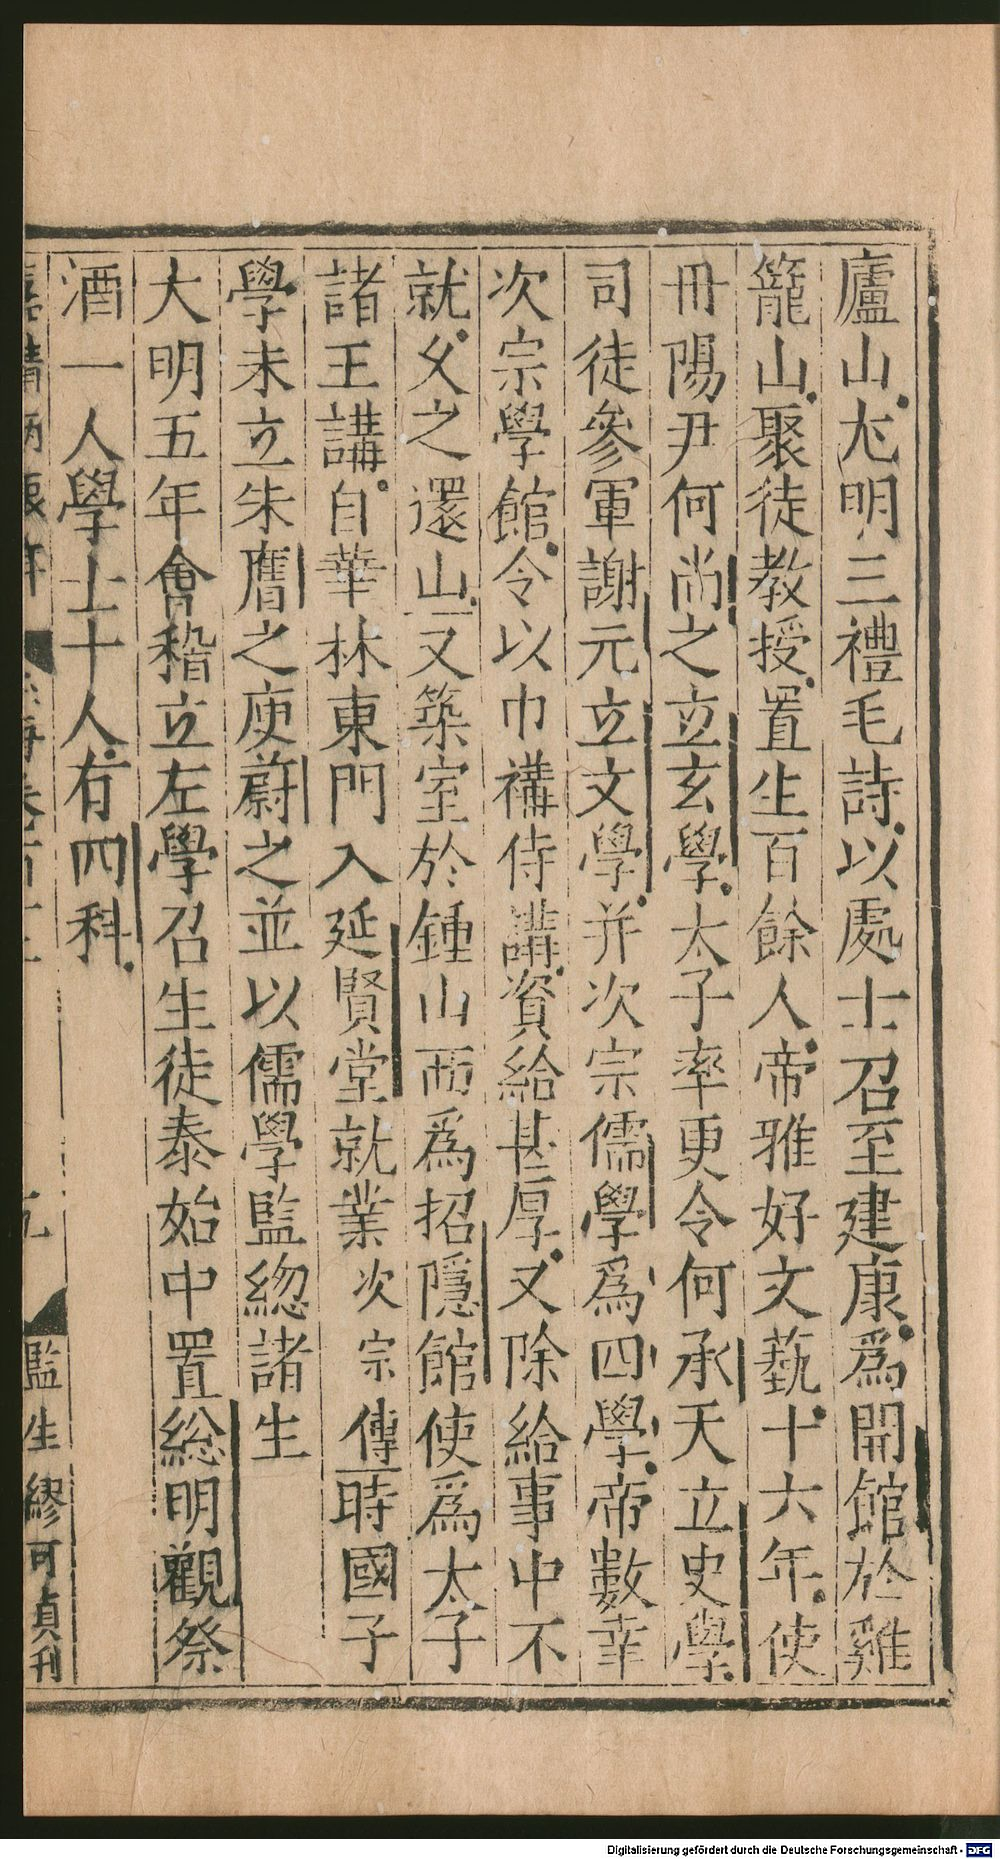 廬山尤明三禮毛詩以處士召至建康爲開館於雞
籠山聚徒教授置生百餘人帝雅好文藝十六年使
丹陽尹何尚之立玄學太子率更令何承天立史學
司徒參軍謝元立文學并次宗儒學爲四學帝數幸
次宗學館令以巾褠侍講資給甚厚又除給事中不
就久之還山又築室於鍾山西爲招隱館使爲太子
諸王講自華林東門入延賢堂就業次宗傳時國子
學未立朱膺之庾蔚之並以儒學監緫諸生
大明五年會稽立左學召生徒泰始中置総明觀祭
酒一人學士十人有四科
監生繆可貞刊
Digitalisierung gefördert durch die Deutsche Forschungsgemeinschaft - DFG